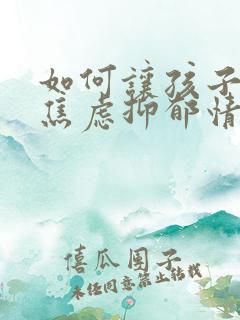 如何讓孩子
焦虑抑郁情
僖瓜团子
未经同意禁止转载